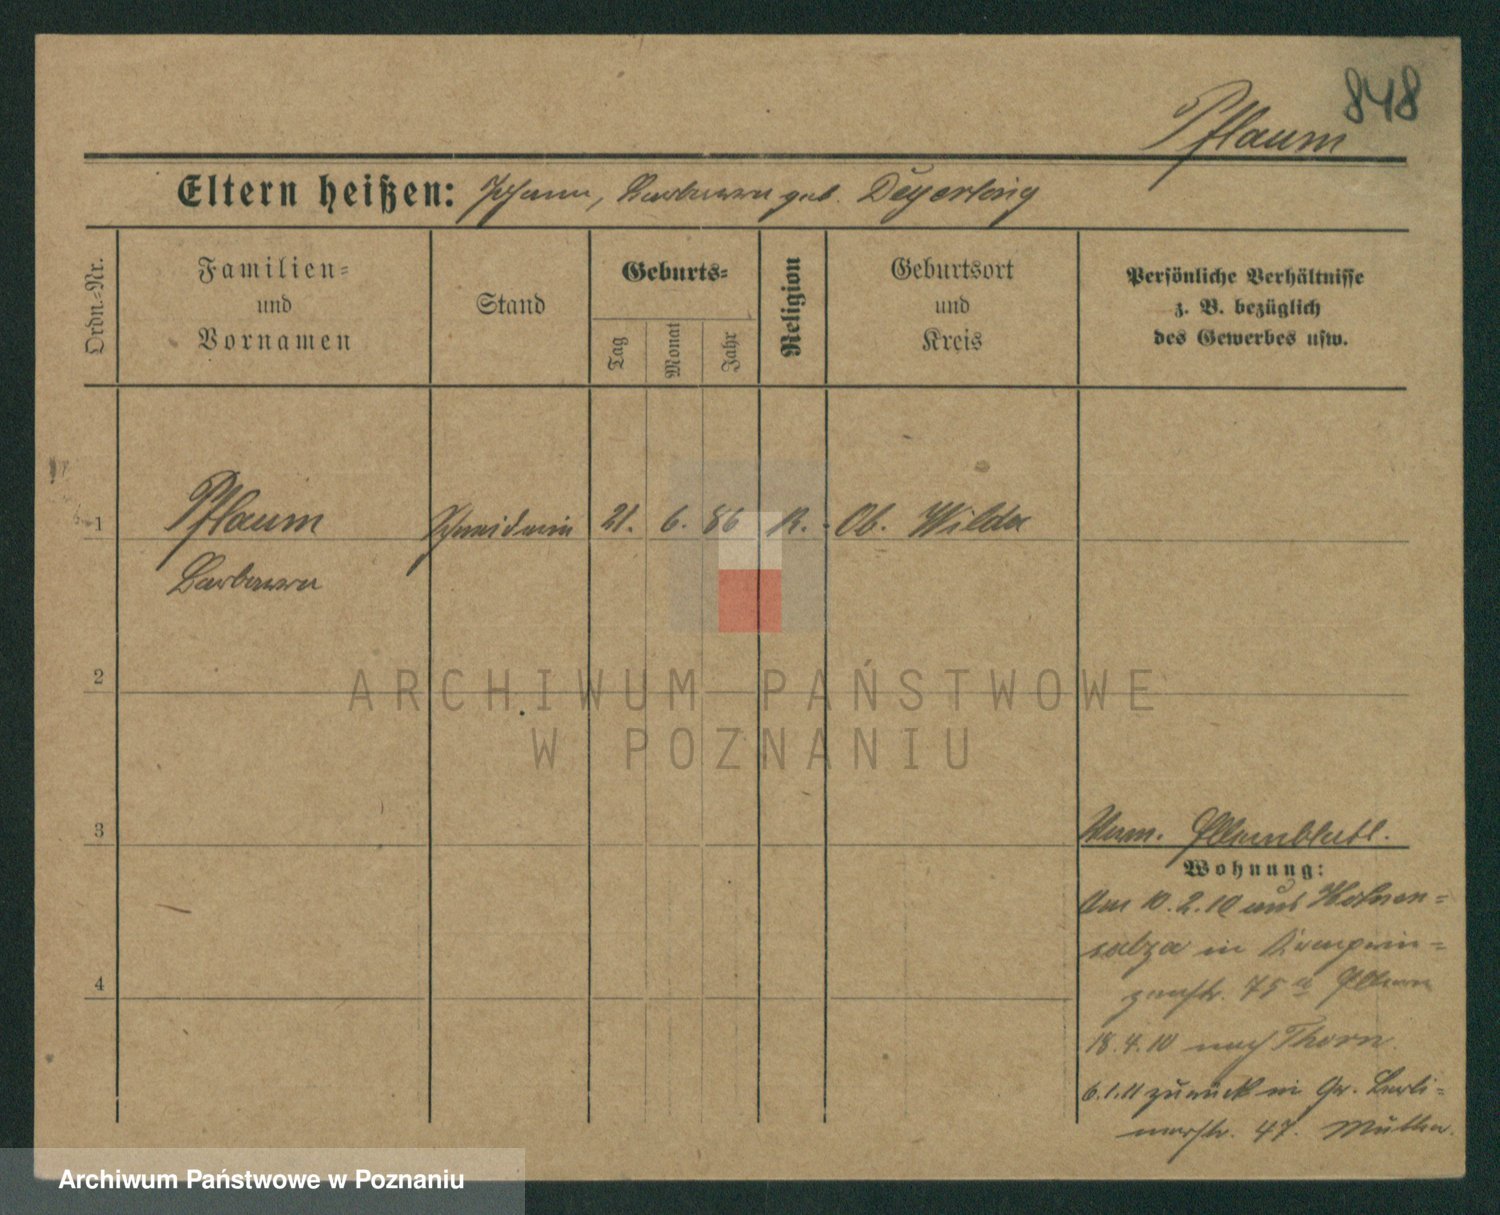 848
Pflaum
Eltern heißen: Johann, Barbara geb. Deyerling
Ordn.-Nr.
Familien-
und
Vornamen
Stand
Geburts-
Tag
Monat
Jahr
Religion
Geburtsort
und
Kreis
Persönliche Verhältnisse
z. B. bezüglich
des Gewerbes usw.
1
Pflaum
Barbara
21. 6. 86 K. Ob. Wilda
2
3
4
Wohnung:
Am 10.2.10 aus Hohen-
salza in
75 a Eltern
18.4.10 nach Thorn.
6.1.11 zurück in Gr. Berli-
nerstr. 47. Mutter.
ARCHIWUM PAŃSTWOWE
W POZNANIU
Archiwum Państwowe w Poznaniu